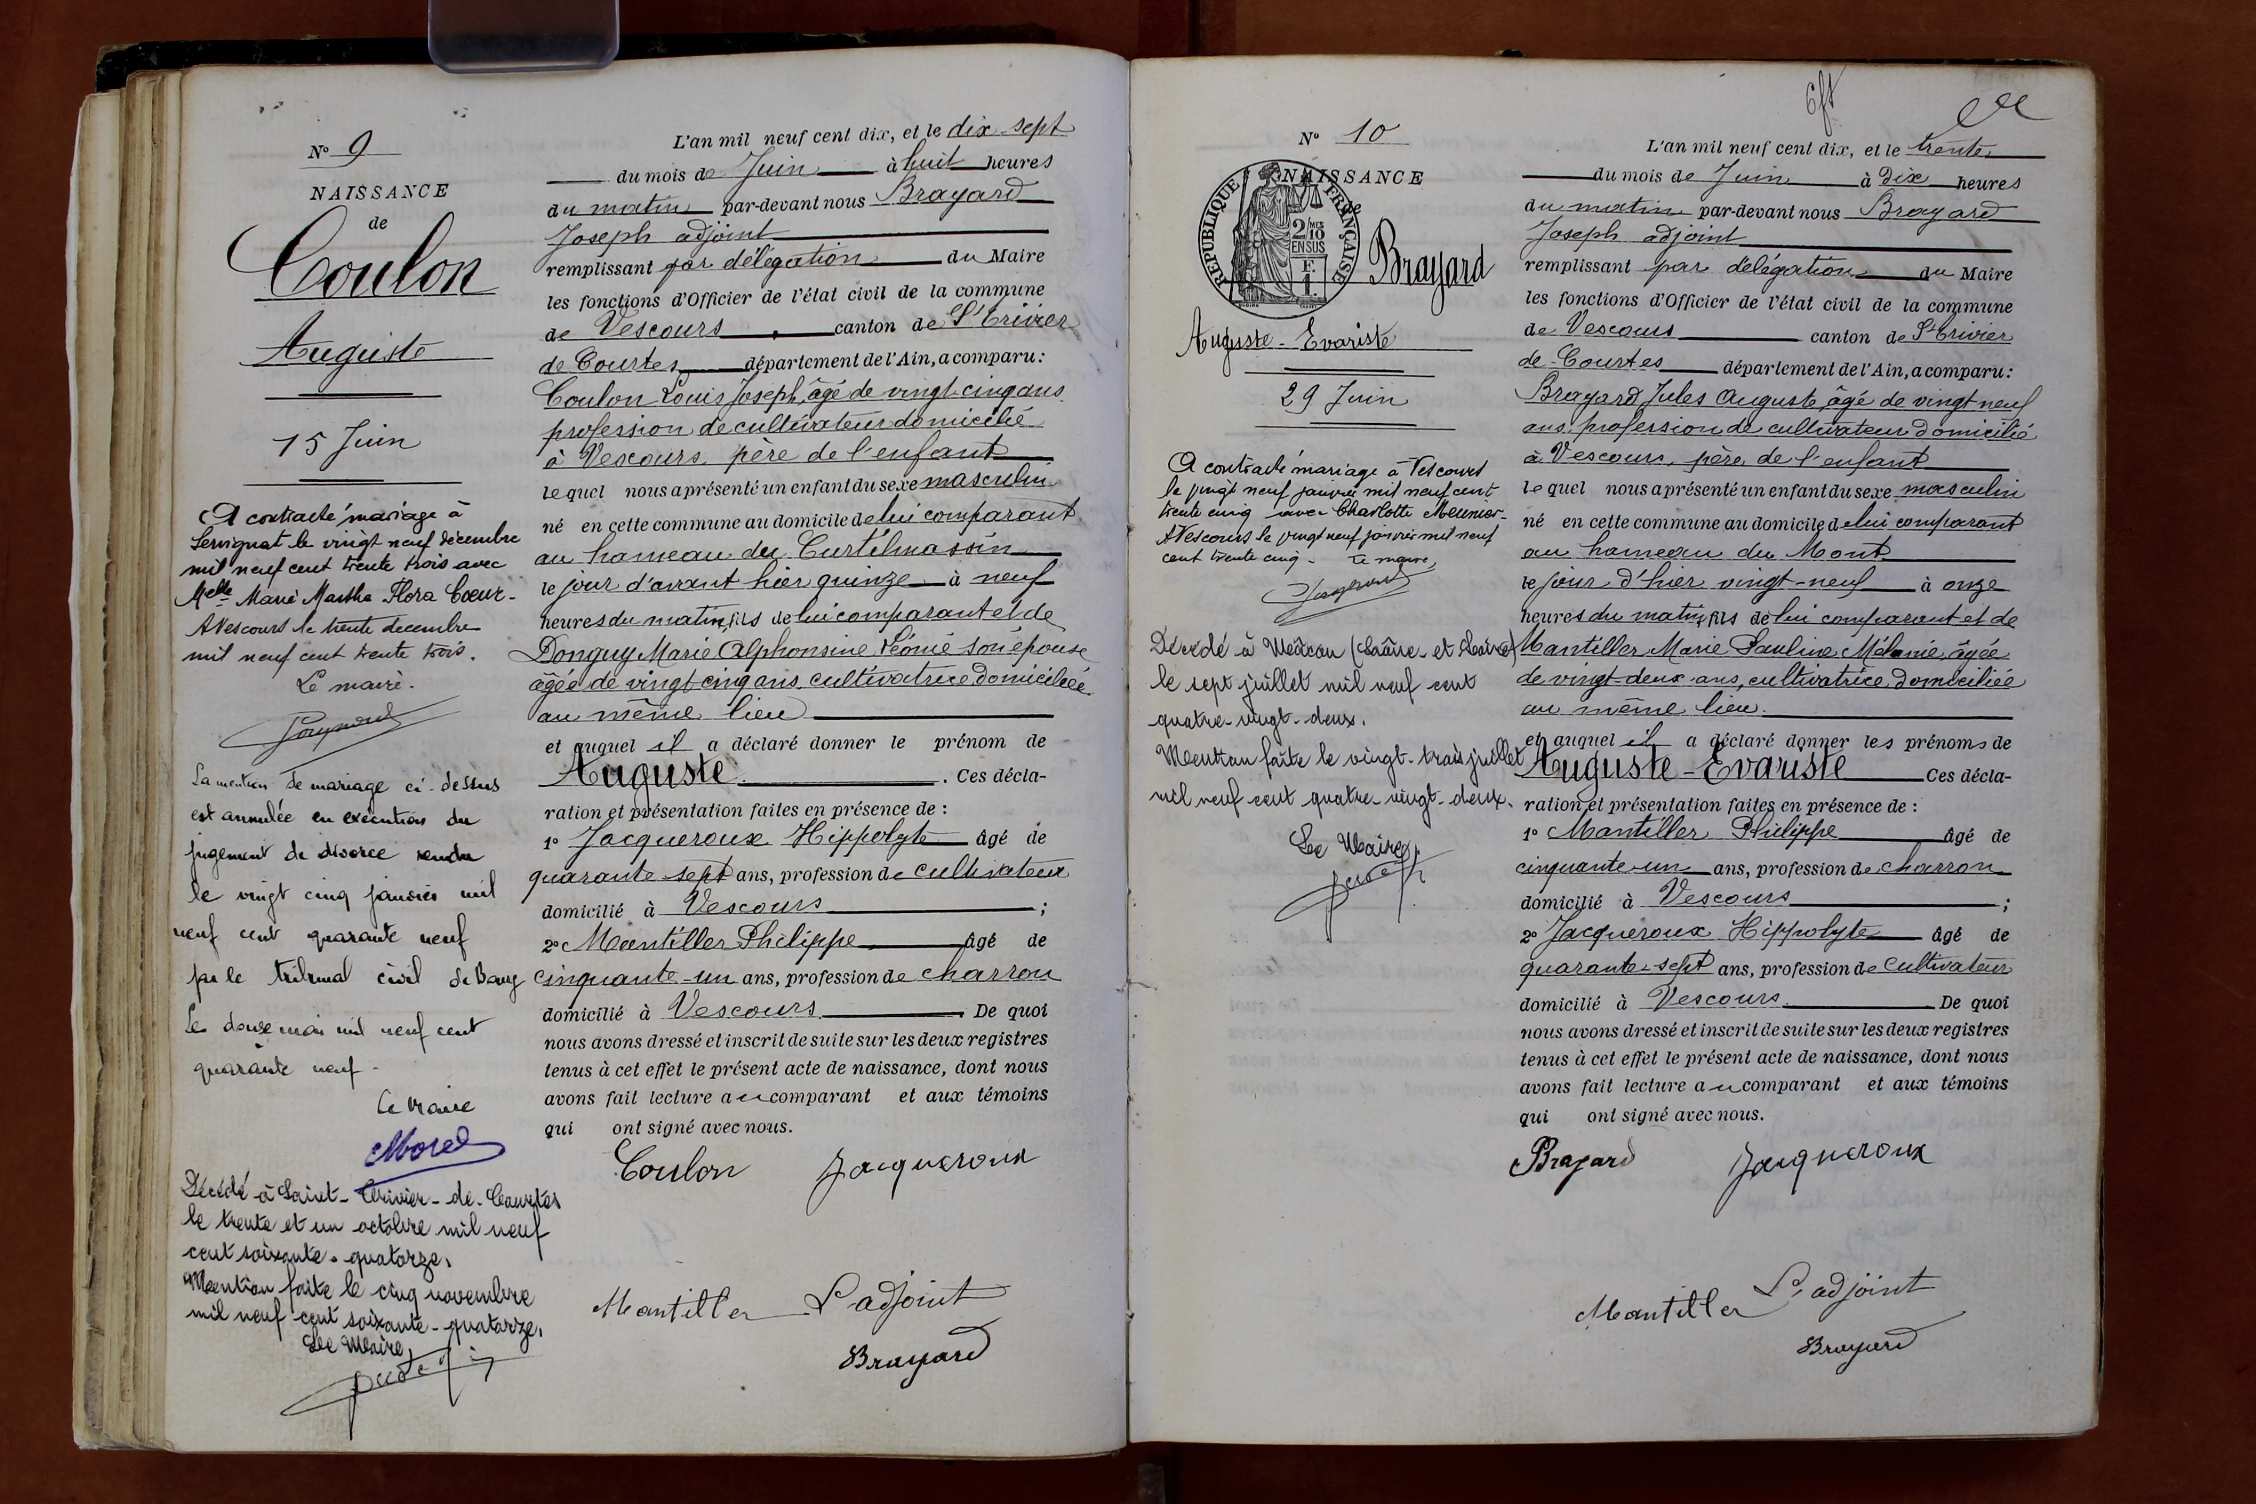 N° 9
NAISSANCE
de
Coulon
Auguste
15 Juin
A contracté mariage à
Servignat le vingt neuf décembre
mil neuf cent trente trois avec
Melle Marie Marthe Flora Coeur-
A Vescours le trente décembre
mil neuf cent trente trois.
Le maire.
La mention de mariage ci-dessus
est annulée en exécution du
jugement de divorce rendu
le vingt cinq janvier mil
neuf cent quarante neuf
par le tribunal civil de Bourg
Le douze mai mil neuf cent
quarante neuf-
Le Maire
Morel
Décédé à Saint-Trivier-de-Courtes
le trente et un octobre mil neuf
cent soixante-quatorze.
Mention faite le cinq novembre
mil neuf cent soixante-quatorze.
Le Maire,
L'an mil neuf cent dix, et le dix-sept
du mois de Juin à huit heures
du matin par-devant nous Brayard
Joseph adjoint
remplissant par délégation du Maire
les fonctions d'Officier de l'état civil de la commune
de Vescours canton de St Trivier
de Courtes département de l'Ain, a comparu:
Coulon Louis Joseph, âgé de vingt-cinq ans
profession de cultivateur domicilié
à Vescours père de l'enfant
lequel nous a présenté un enfant du sexe masculin
né en cette commune au domicile de lui comparant
au hameau du Curtilmassin
le jour d'avant hier quinze à neuf
heures du matin, fils de lui comparant et de
Donguy Marie Alphonsine Léonie son épouse
âgée de vingt cinq ans cultivatrice domiciliée
au même lieu
et auquel il a déclaré donner le prénom de
Auguste. Ces décla-
ration et présentation faites en présence de :
1° Jacqueroux Hippolyte âgé de
quarante sept ans, profession de cultivateur
domicilié à Vescours ;
2° Mantiller Philippe âgé de
cinquante-un ans, profession de charron
domicilié à Vescours. De quoi
nous avons dressé et inscrit de suite sur les deux registres
tenus à cet effet le présent acte de naissance, dont nous
avons fait lecture au comparant et aux témoins
qui ont signé avec nous.
Coulon Jacqueroux
Mantiller L'adjoint
Brayard
N° 10
NAISSANCE
de
RÉPUBLIQUE FRANÇAISE
2/10 MES
EN SUS
F.
1.
Brayard
Auguste-Evariste
29 Juin
A contracté mariage à Vescours
le vingt neuf janvier mil neuf cent
trente cinq avec Charlotte Meunier-
A Vescours le vingt neuf janvier mil neuf
cent trente cinq - Le maire,
Décédé à Mâcon (Saône-et-Loire)
le sept juillet mil neuf cent
quatre-vingt-deux.
Mention faite le vingt-trois juillet
mil neuf cent quatre-vingt-deux.
Le Maire,
L'an mil neuf cent dix, et le trente
du mois de Juin à dix heures
du matin par-devant nous Brayard
Joseph adjoint
remplissant par délégation du Maire
les fonctions d'Officier de l'état civil de la commune
de Vescours canton de St Trivier
de Courtes département de l'Ain, a comparu:
Brayard Jules Auguste, âgé de vingt-neuf
ans, profession de cultivateur domicilié
à Vescours, père de l'enfant
lequel nous a présenté un enfant du sexe masculin
né en cette commune au domicile de lui comparant
au hameau du Mont
le jour d'hier vingt-neuf à onze
heures du matin, fils de lui comparant et de
Mantiller Marie Pauline Mélanie, âgée
de vingt-deux ans, cultivatrice, domiciliée
au même lieu.
et auquel il a déclaré donner les prénoms de
Auguste-Evariste Ces décla-
ration et présentation faites en présence de :
1° Mantiller Philippe âgé de
cinquante-un ans, profession de charron
domicilié à Vescours ;
2° Jacqueroux Hippolyte âgé de
quarante-sept ans, profession de cultivateur
domicilié à Vescours. De quoi
nous avons dressé et inscrit de suite sur les deux registres
tenus à cet effet le présent acte de naissance, dont nous
avons fait lecture au comparant et aux témoins
qui ont signé avec nous.
Brayard Jacqueroux
Mantiller L'adjoint
Brayard